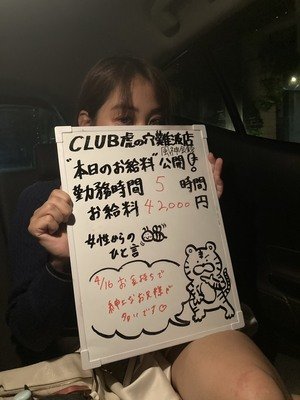 CLUB虎の穴難波店
"本日のお給料 公開!
勤務時間 5 時間
お給料 42,000 円
女性からの
ひと言
4/16 お気持ちで
紳士なお客様が
多いです♡